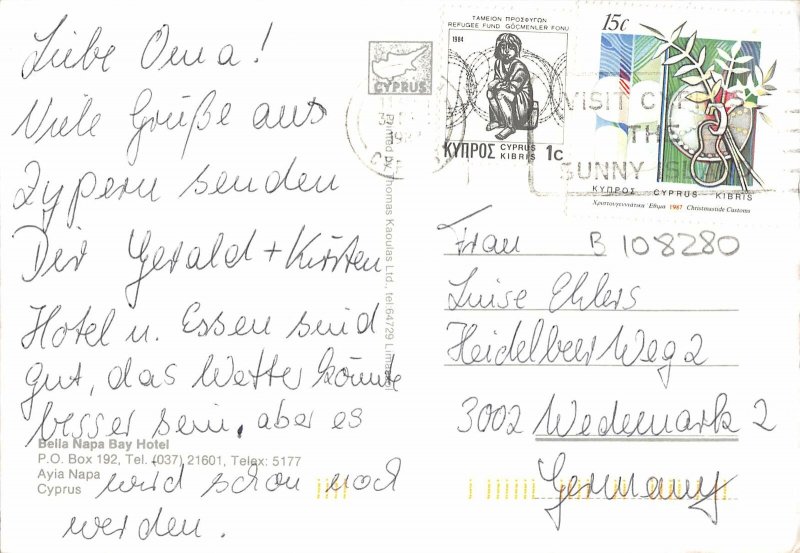 Liebe Oma!
Viele Grüße aus
Zypern senden
Dir Gerald + Kirsten
Hotel u. Essen sind
gut, das Wetter könnte
besser sein, aber es
wird schon noch
werden.
Bella Napa Bay Hotel
P.O. Box 192, Tel. (037) 21601, Telex: 5177
Ayia Napa
Cyprus
Printed by Thomas Kaoulas Ltd., tel: 64729 Limassol
CYPRUS
ΤΑΜΕΙΟΝ ΠΡΟΣΦΥΓΩΝ
REFUGEE FUND GÖÇMENLER FONU
1984
ΚΥΠΡΟΣ CYPRUS KIBRIS 1c
15c
ΚΥΠΡΟΣ CYPRUS KIBRIS
Χριστουγεννιάτικα Έθιμα 1987 Christmastide Customs
VISIT
THE
SUNNY ISLAND
Frau B 108280
Luise Ehlers
Heidelbeer Weg 2
3002 Wedemark 2
Germany